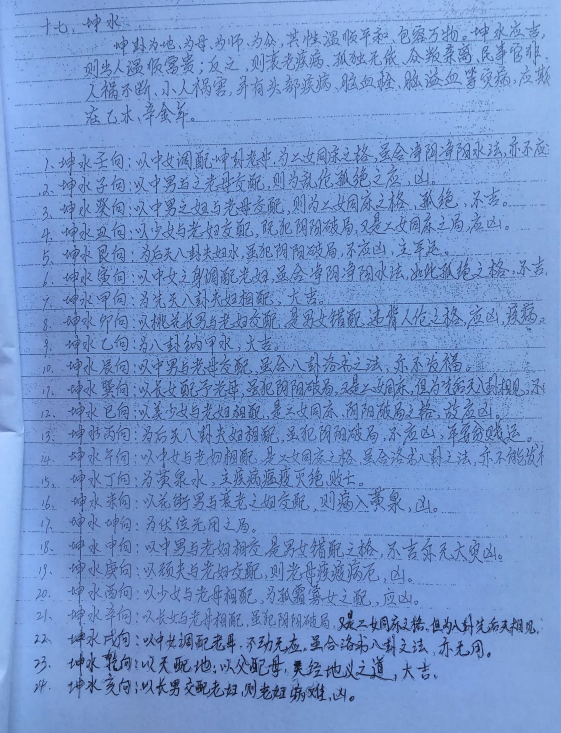 十七、坤水
坤卦为地、为母、为师、为众,其性温顺平和,包容万物。坤水应吉,
则出人温顺富贵;反之,则衰老疾病,孤独无依,众叛亲离,民事官非,
人祸不断,小人祸害,并有头部疾病,脑血栓、脑溢血等灾病,应期
在乙木、辛金年。
1、坤水子向:以中女调配坤卦老母,为二女同床之格,虽合净阴净阳水法,亦不应
2、坤水子向:以中男与之老母交配,则为乱伦孤绝之应,凶。
3、坤水癸向:以中男之妇与老母交配,则为二女同床之格,孤绝,不吉。
4、坤水丑向:以少女与老母交配,既犯阴阳破局,又是二女同床之局,应凶。
5、坤水艮向:为后天八卦夫妇水,虽犯阴阳破局,不应凶,主平运。
6、坤水寅向:以中女之身调配老妇,虽合净阴净阳水法,此孤绝之格,不吉
7、坤水甲向:为先天八卦夫妇相配,大吉。
8、坤水卯向:以桃花长男与老妇交配,是男女错配,违背人伦之格,应凶,疾病。
9、坤水乙向:为八卦纳甲水,大吉。
10、坤水辰向:以中男与老母交配,虽合八卦洛书之法,亦不为福。
坤水巽向:以长女配于老母,虽犯阴阳破局,又是二女同床,但为先后天八卦相见,不
12、坤水巳向:以美少女与老妇相配,是二女同床,阴阳破局之格,故应凶。
13、坤水丙向:为后天八卦夫妇相配,虽犯阴阳破局,不应凶,
14、坤水午向:以中女与老妇相配,是二女同床之格,虽合洛书八卦之法,亦不能
15、坤水丁向:为黄泉水,主疾病瘟疫灭绝,败亡。
16、坤水未向:以花街男与衰老之妇交配,则病入黄泉,凶。
17、坤水坤向:为伏位无用之局。
18、坤水申向:以中男与老妇相交,是男女错配之格,不吉亦无大灾凶。
19、坤水庚向:以顽夫与老妇交配,则老母疾疫病厄,凶。
20、坤水酉向:以少女与老母相配,为孤霸寡女之配,应凶。
21、坤水辛向:以长女与老母相配,虽犯阴阳破局,又是二女同床之格,但为八卦先后天相见,
22、坤水戌向:以中女调配老母,不动无应,虽合洛书八卦之法,亦无用。
23、坤水乾向:以天配地,以父配母,天经地义之道,大吉。
24、坤水亥向:以长男交配老妇,则老妇病难,凶。